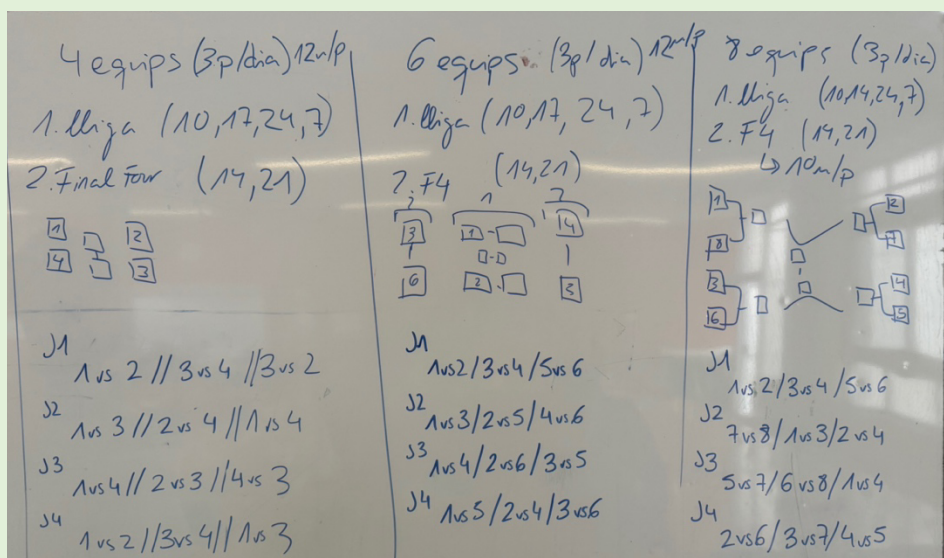 4 equips (3p/dia) 12m/p
1. lliga (10,17,24,7)
2. Final Four (14,21)
1 2
4 3
J1
1 vs 2 // 3 vs 4 // 3 vs 2
J2
1 vs 3 // 2 vs 4 // 1 vs 4
J3
1 vs 4 // 2 vs 3 // 4 vs 3
J4
1 vs 2 // 3 vs 4 // 1 vs 3
6 equips. (3p/dia) 12m/p
1. lliga (10,17, 24,7)
2. F4 (14,21)
1
3 1 - 4
6 2 - 5
J1
1vs2 / 3vs4 / 5vs6
J2
1vs3 / 2vs5 / 4vs6
J3
1vs4 / 2vs6 / 3vs5
J4 1vs5 / 2vs4 / 3vs6
8 equips (3p/dia)
1. lliga (10,14,24,7)
2. F4 (14,21)
↳ 10m/p
1 2
8 7
3 4
6 5
J1
1vs2 / 3vs4 / 5vs6
J2
7vs8 / 1vs3 / 2vs4
J3
5vs7 / 6vs8 / 1vs4
J4
2vs6 / 3vs7 / 4vs5